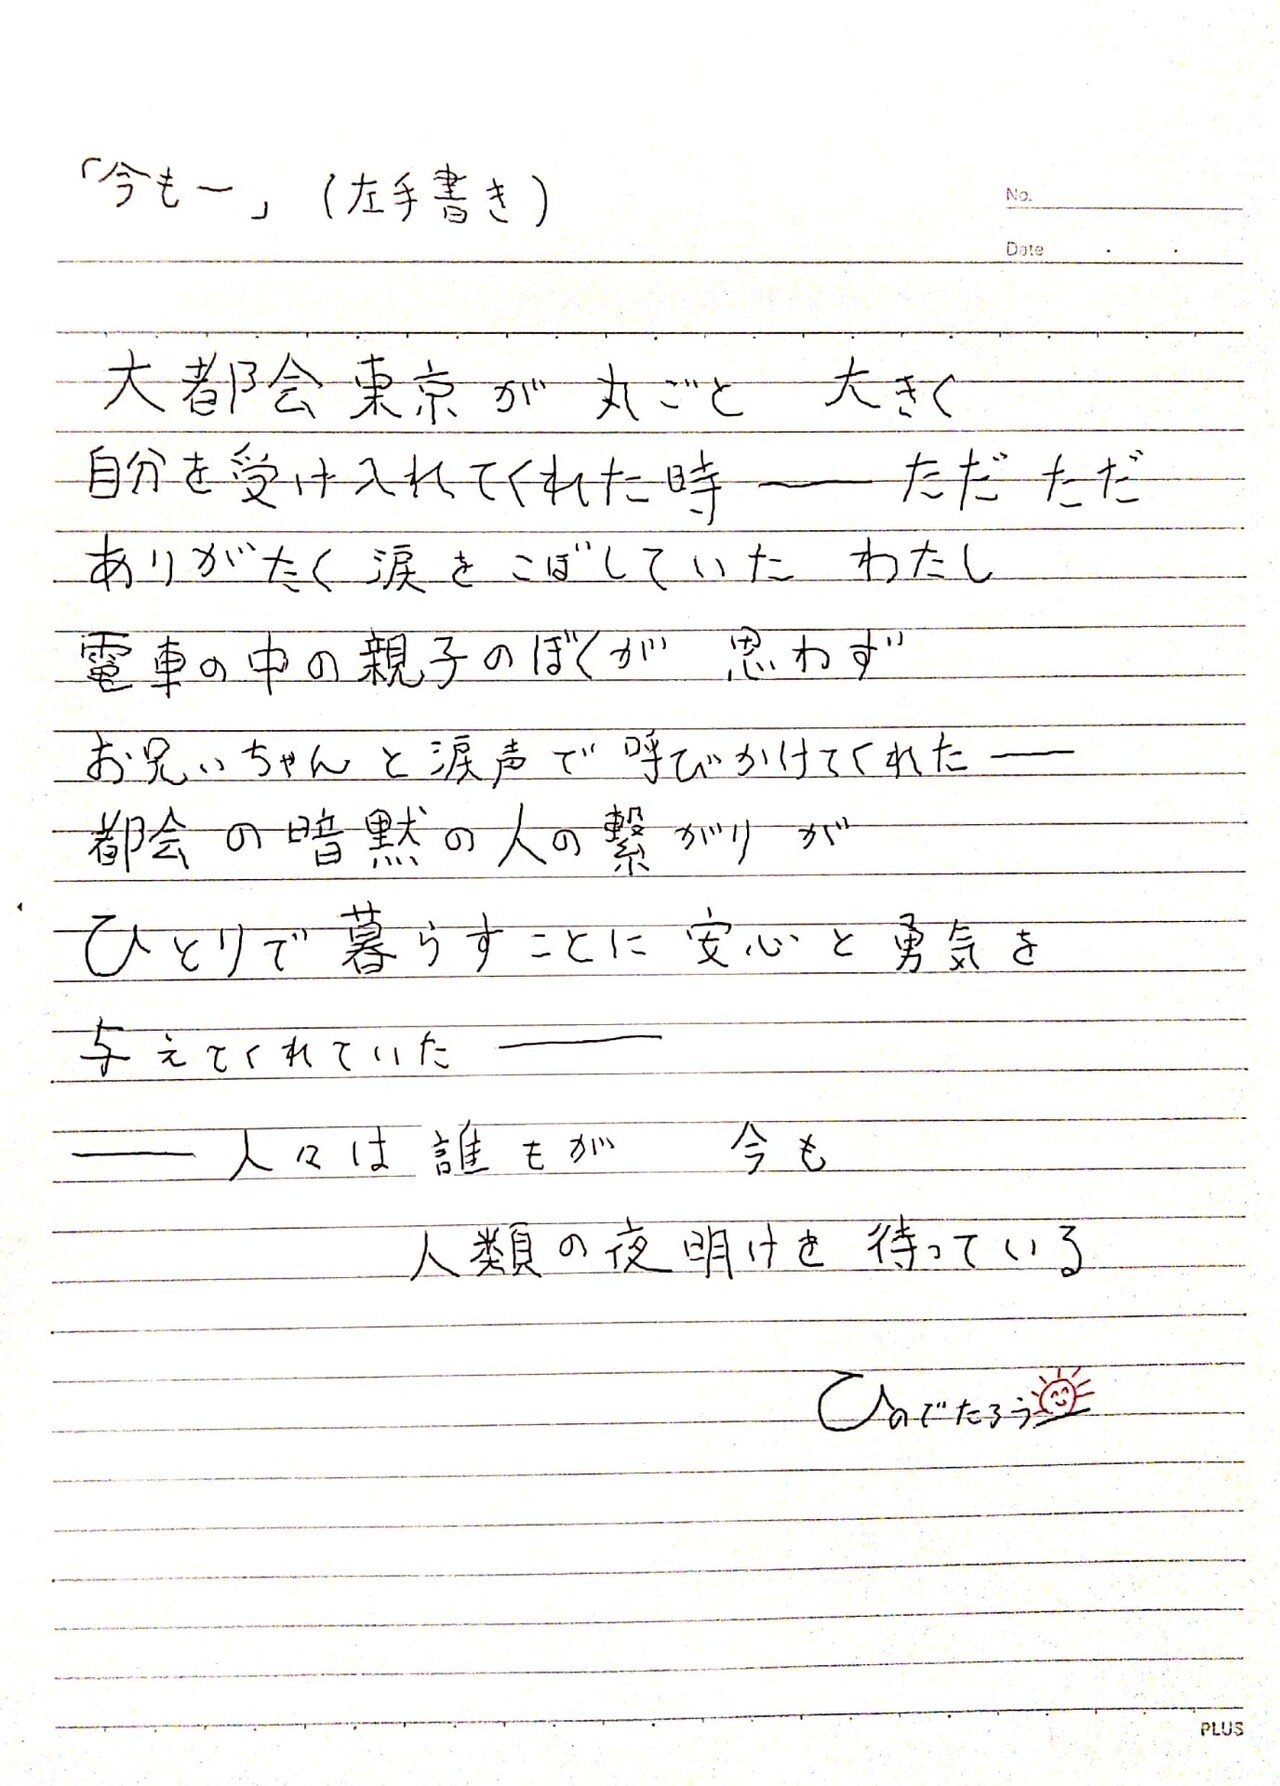 「今もー」(左手書き)
No.
Date
大都会東京が 丸ごと 大きく
自分を受け入れてくれた時 ── ただ ただ
ありがたく 涙を こぼしていた わたし
電車の中の親子のぼくが 思わず
お兄いちゃんと涙声で 呼びかけてくれた ──
都会の暗黙の人の繋がりが
ひとりで暮らすことに 安心と勇気を
与えてくれていた ──
── 人々は 誰もが 今も
人類の夜明けを 待っている
ひのでたろう
PLUS